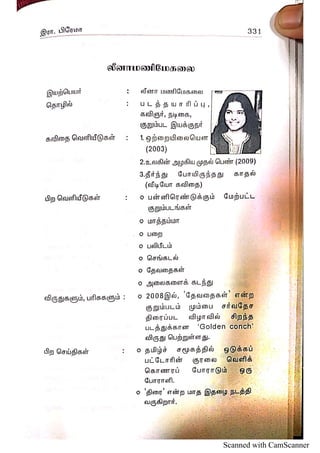 இரா. பிரேமா 331
லீனாமணிமேகலை
இயற்பெயர் : லீனா மணிமேகலை
தொழில் : படத்தயாரிப்பு,
கவிஞர், நடிகை,
குறும்பட இயக்குநர்
கவிதை வெளியீடுகள் : 1. ஒற்றையிலையென
(2003)
2.உலகின் அழகிய முதல் பெண் (2009)
3.தீர்ந்து போயிருந்தது காதல்
(வீடியோ கவிதை)
பிற வெளியீடுகள் : o பன்னிரெண்டுக்கும் மேற்பட்ட
குறும்படங்கள்
o மாத்தம்மா
o பறை
o பலிபீடம்
o செங்கடல்
o தேவதைகள்
o அலைகளைக் கடந்து
விருதுகளும், பரிசுகளும் : o 2008இல், 'தேவதைகள்' என்ற
குறும்படம் மும்பை சர்வதேச
திரைப்பட விழாவில் சிறந்த
படத்துக்கான 'Golden conch'
விருது பெற்றுள்ளது.
பிற செய்திகள் : o தமிழ்ச் சமூகத்தில் ஒடுக்கப்
பட்டோரின் குரலை வெளிக்
கொணரப் போராடும் ஒரு
போராளி.
o 'திரை' என்ற மாத இதழை நடத்தி
வருகிறார்.
Scanned with CamScanner